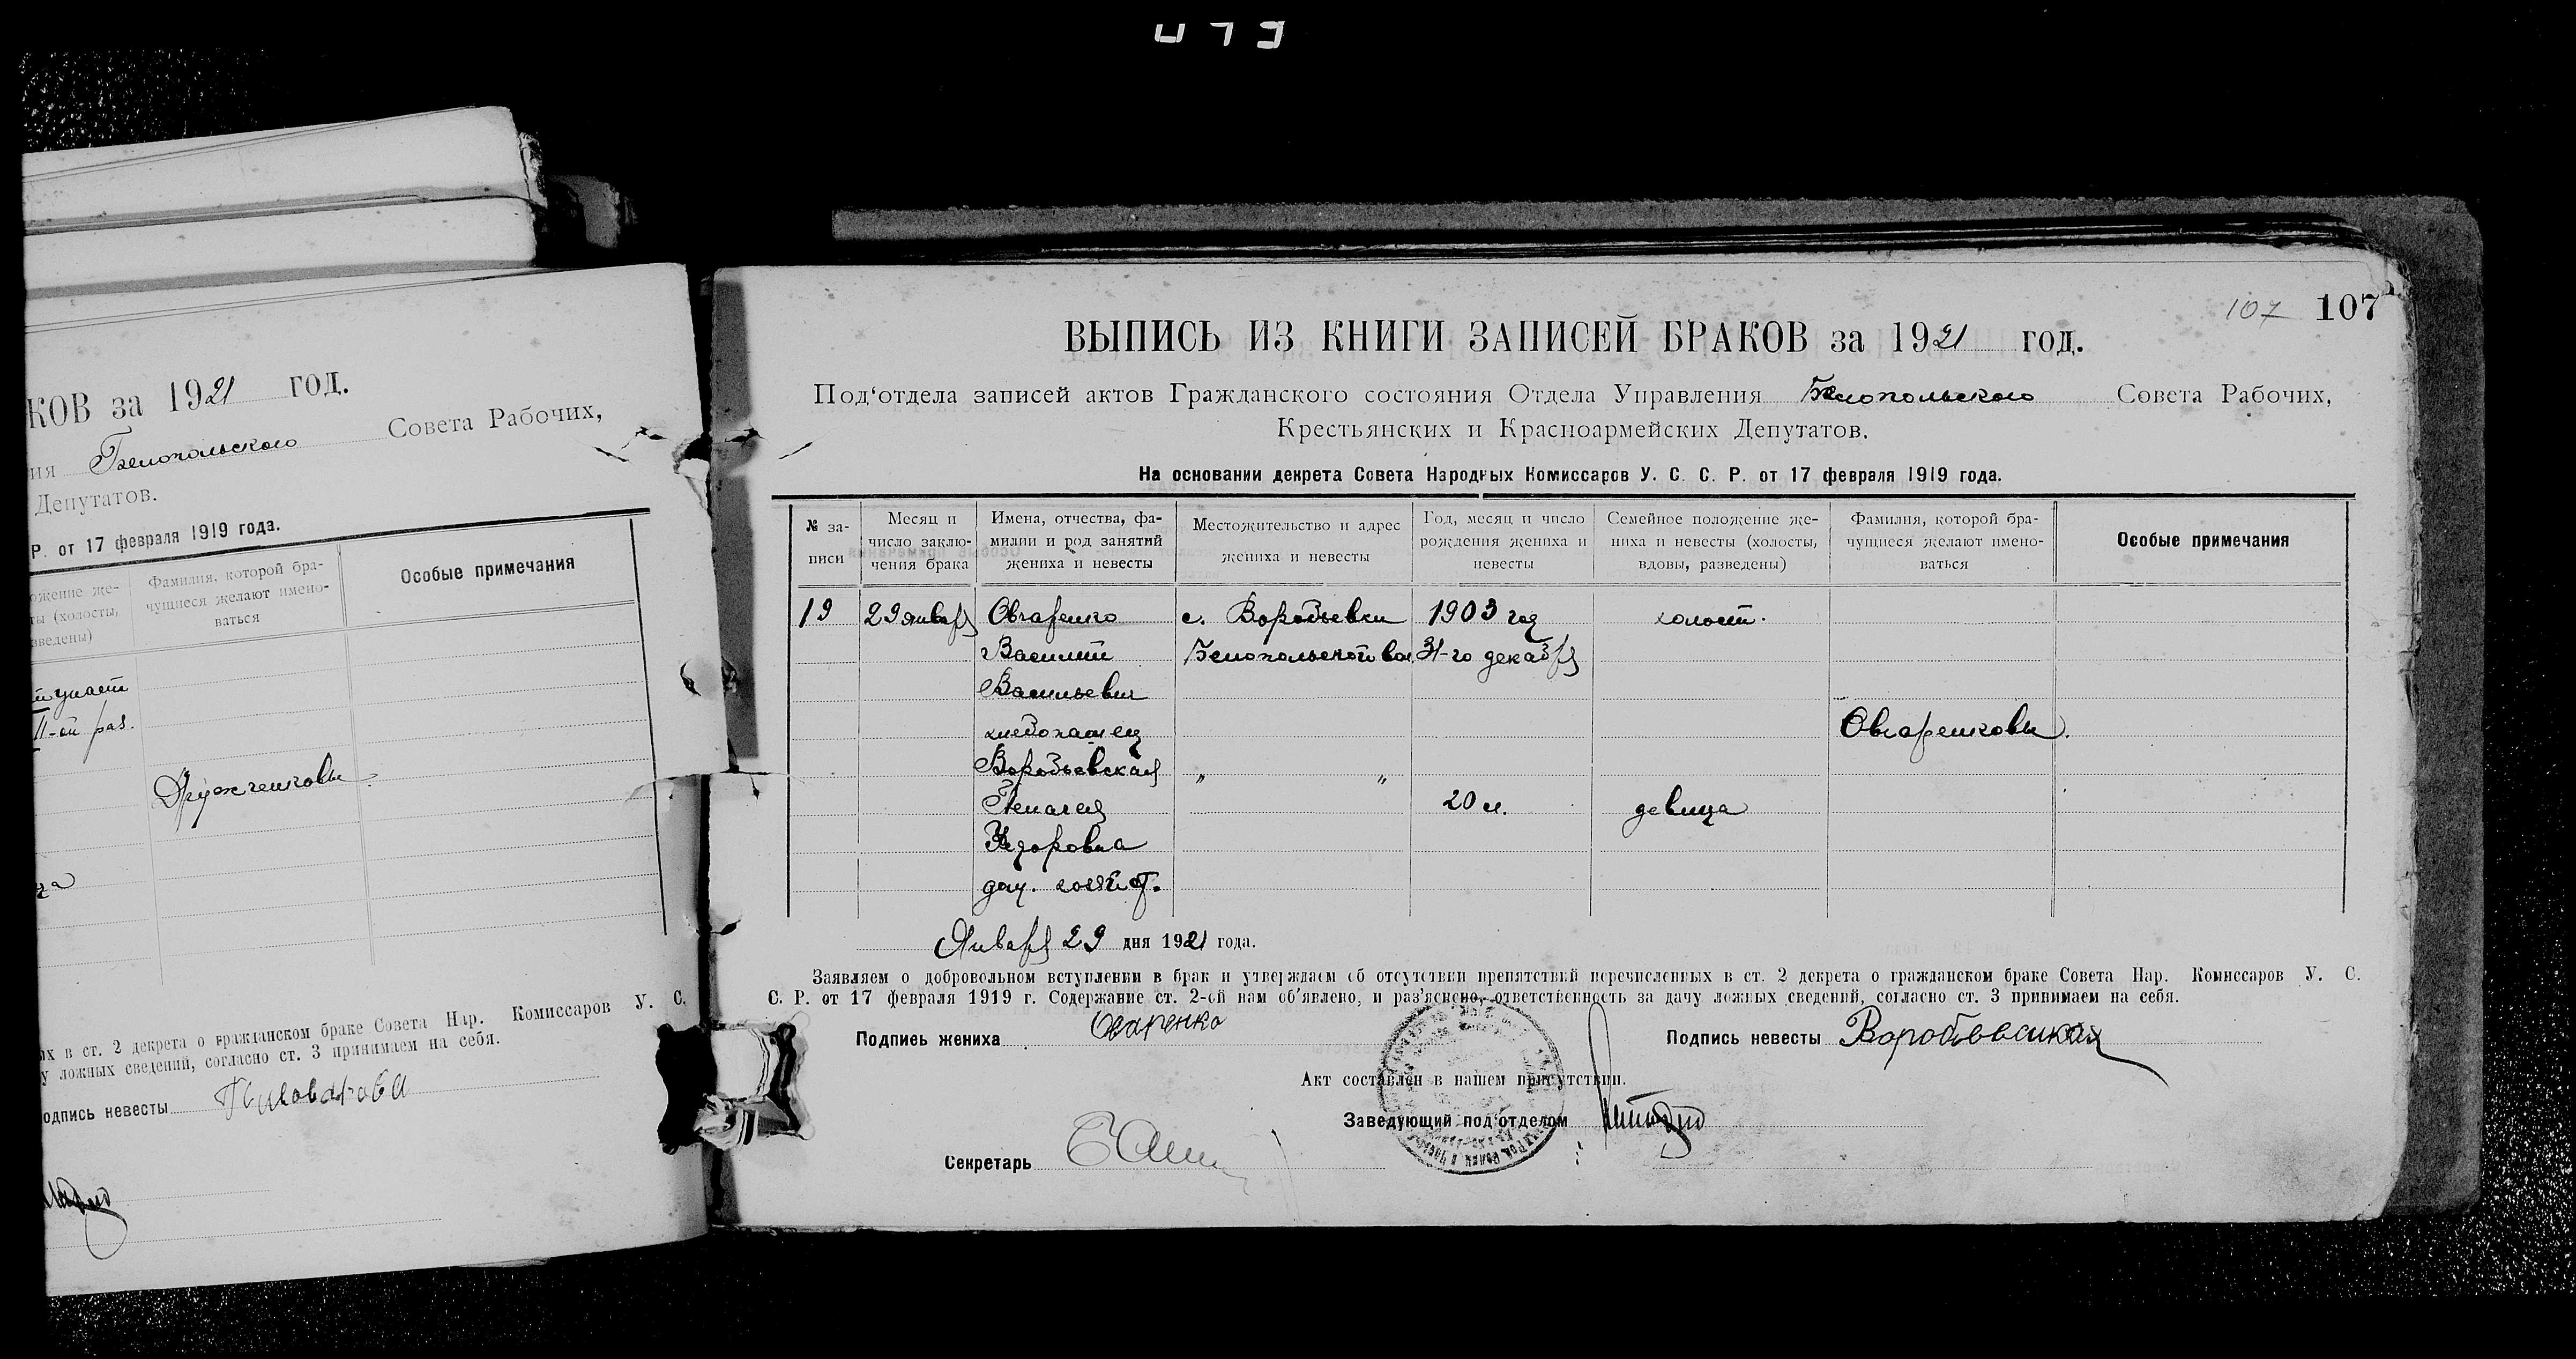 КОВ за 1921 год.
ия Белопольского Совета Рабочих,
Депутатов.
Р. от 17 февраля 1919 года.
ожение же-
ты (холосты,
зведены)
Фамилия, которой бра-
чущиеся желают имено-
ваться
Особые примечания
II-ой раз.
Дружченковы
ца
ых в ст. 2 декрета о гражданском браке Совета Нар. Комиссаров У. С.
у ложных сведений, согласно ст. 3 принимаем на себя.
одпись невесты
107 107
ВЫПИСЬ ИЗ КНИГИ ЗАПИСЕЙ БРАКОВ за 1921 год.
Под'отдела записей актов Гражданского состояния Отдела Управления Белопольского Совета Рабочих,
Крестьянских и Красноармейских Депутатов.
На основании декрета Совета Народных Комиссаров У. С. С. Р. от 17 февраля 1919 года.
№ за-
писи
Месяц и
число заклю-
чения брака
Имена, отчества, фа-
милии и род занятий
жениха и невесты
Местожительство и адрес
жениха и невесты
Год, месяц и число
рождения жениха и
невесты
Семейное положение же-
ниха и невесты (холосты,
вдовы, разведены)
Фамилия, которой бра-
чущиеся желают имено-
ваться
Особые примечания
19 29 января Овчаренко с. Воробьевки 1903 год холост.
Василий Белопольской вол 31-го декабря
Васильевич
хлебопашец Овчаренковы.
Воробьевская " "
20 л. девица
Федоровна
Января 29 дня 1921 года.
Заявляем о добровольном вступлении в брак и утверждаем об отсутствии препятствий перечисленных в ст. 2 декрета о гражданском браке Совета Нар. Комиссаров У. С.
С. Р. от 17 февраля 1919 г. Содержание ст. 2-ой нам об'явлено, и раз'яснено, ответственность за дачу ложных сведений, согласно ст. 3 принимаем на себя.
Подпись жениха Овчаренко
Подпись невесты Воробьевская
Акт составлен в нашем присутствии.
Заведующий под'отделом
Секретарь